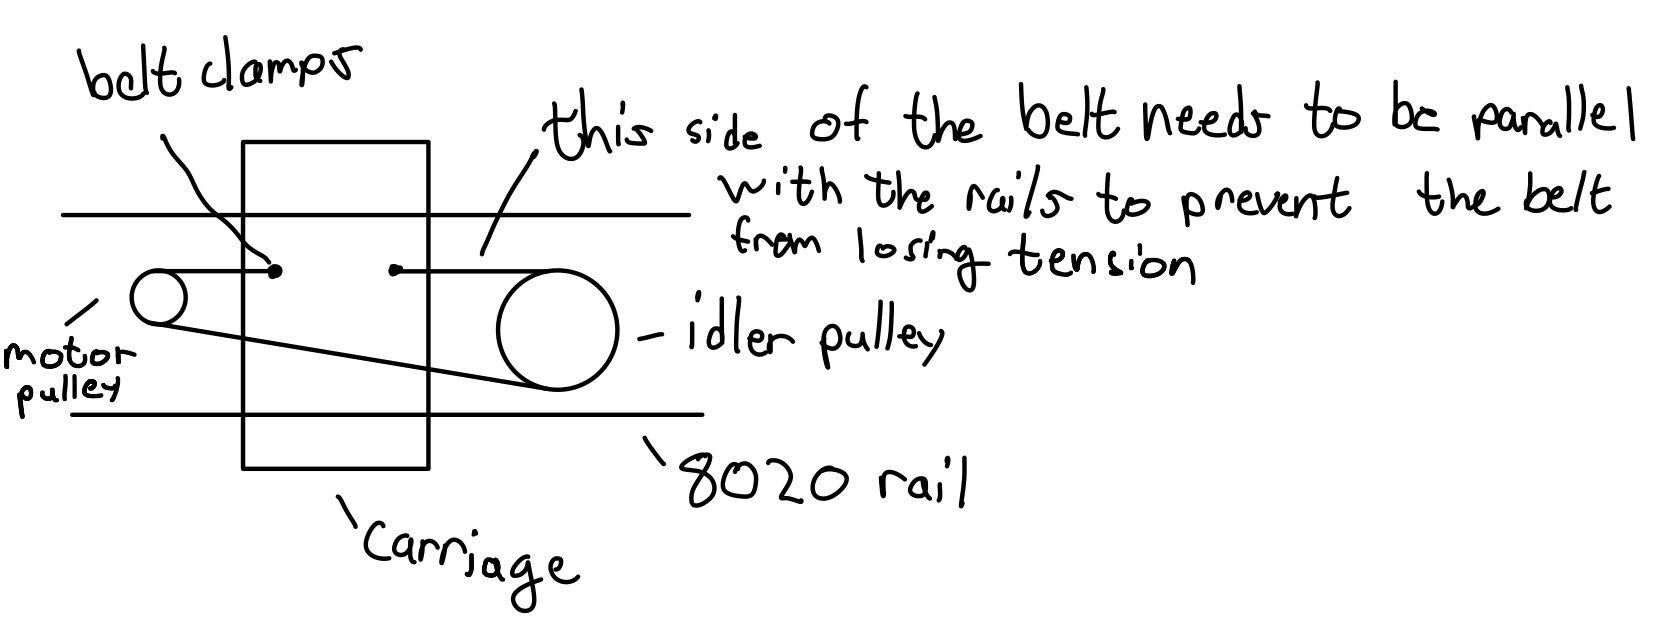 belt clamps
this side of the belt needs to be parallel
with the rails to prevent the belt
from losing tension
idler pulley
motor
pulley
8020 rail
carriage